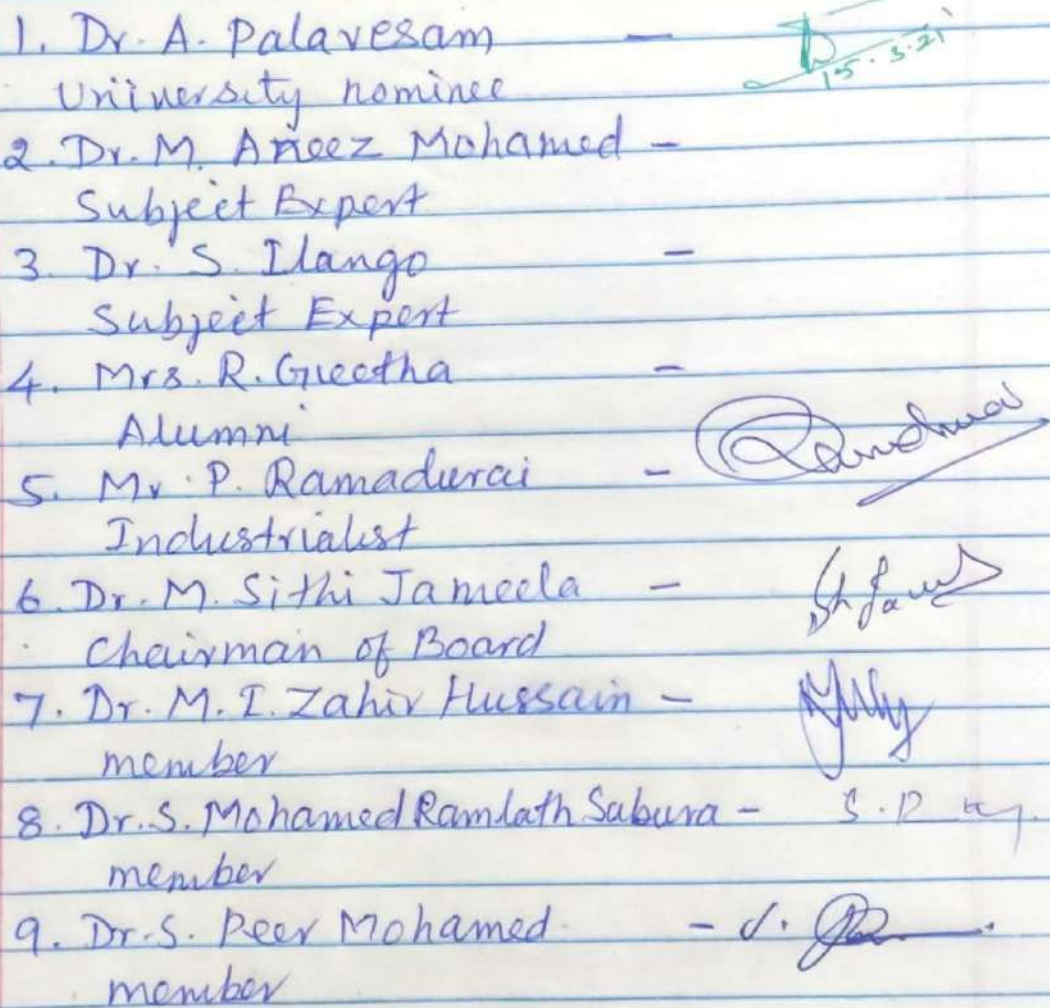 1. Dr. A. Palavesam - 15.3.21
University nominee
2. Dr. M. Aneez Mohamed -
Subject Expert
3. Dr. S. Ilango -
Subject Expert
4. Mrs. R. Geetha -
Alumni
5. Mr. P. Ramadurai -
Industrialist
6. Dr. M. Sithi Jameela -
Chairman of Board
7. Dr. M. I. Zahir Hussain -
member
8. Dr. S. Mohamed Ramlath Sabura - S.R
9. Dr. S. Peer Mohamed. -
member